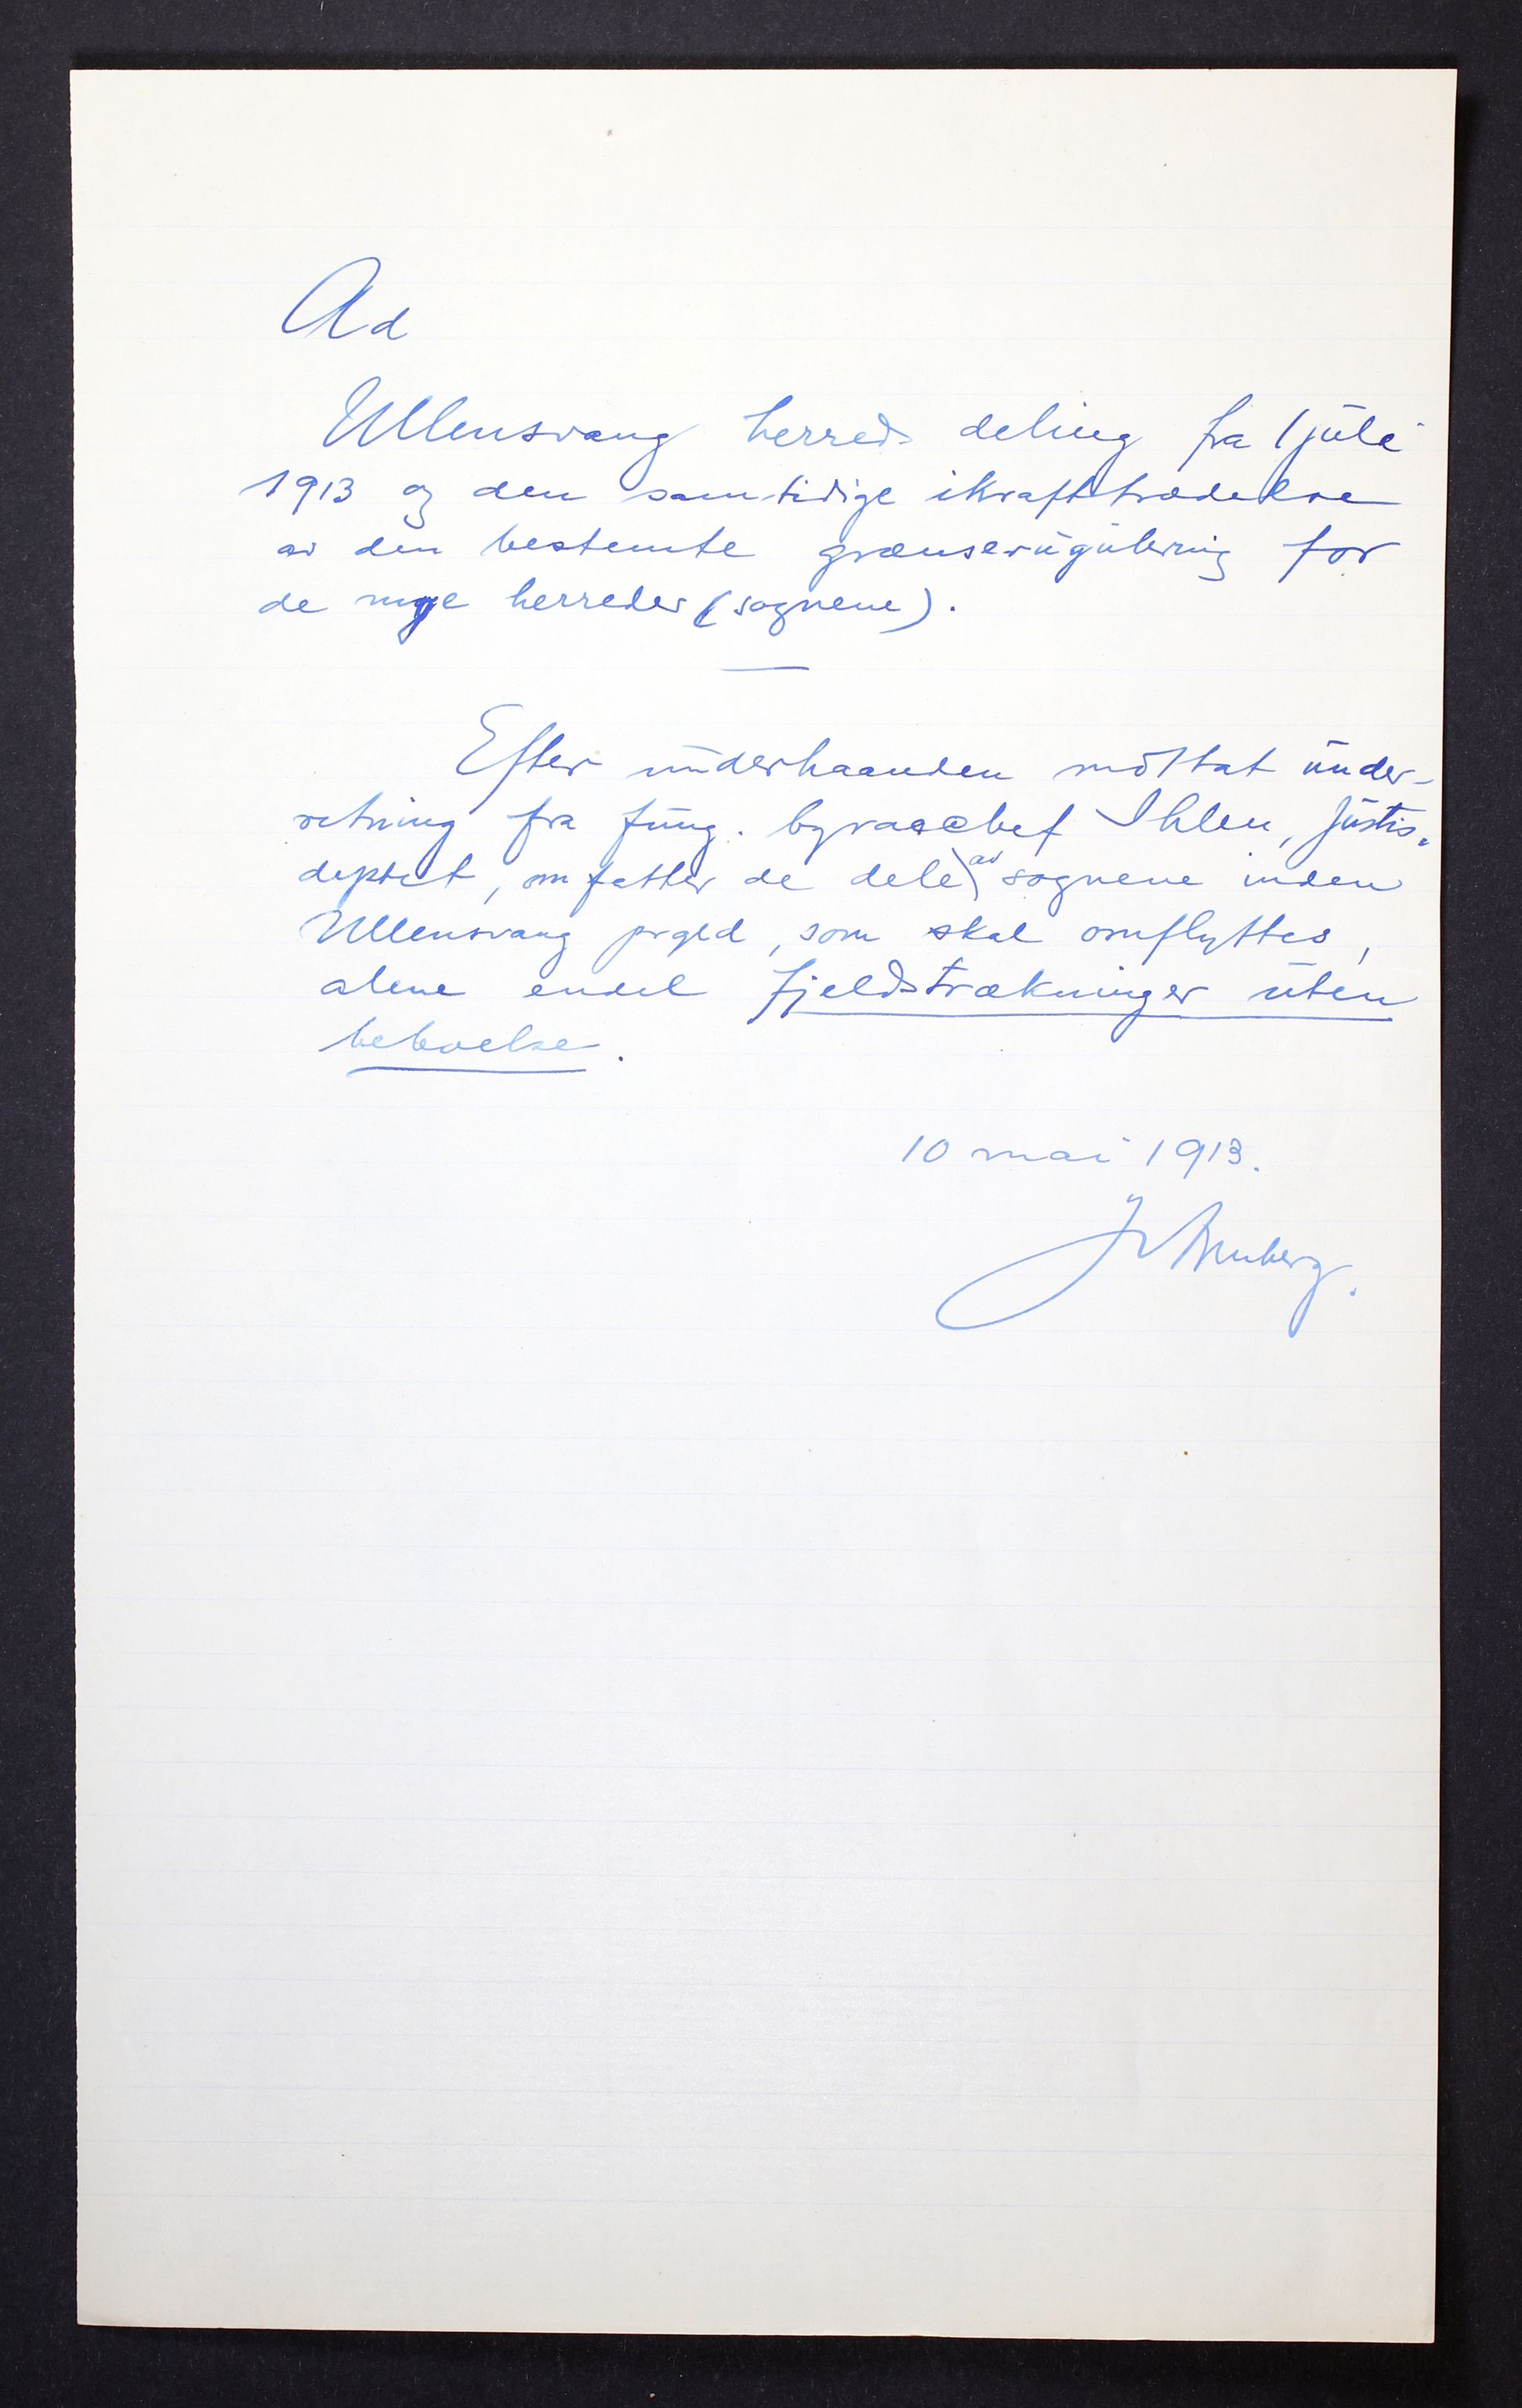 Ad
Ullensvang herreds deling fra 1 juli
1913 og den samtidige ikrafttrædelse
av den bestemte grænseregulering for
de nye herreder (sognene).
Efter underhaanden mottat under-
retning fra fung. byraachef Ihlen, Justis-
deptet, omfatter de dele av sognene inden
Ullensvang prgld, som skal omflyttes,
alene endel fjeldstrækninger uten
beboelse.
10 mai 1913.